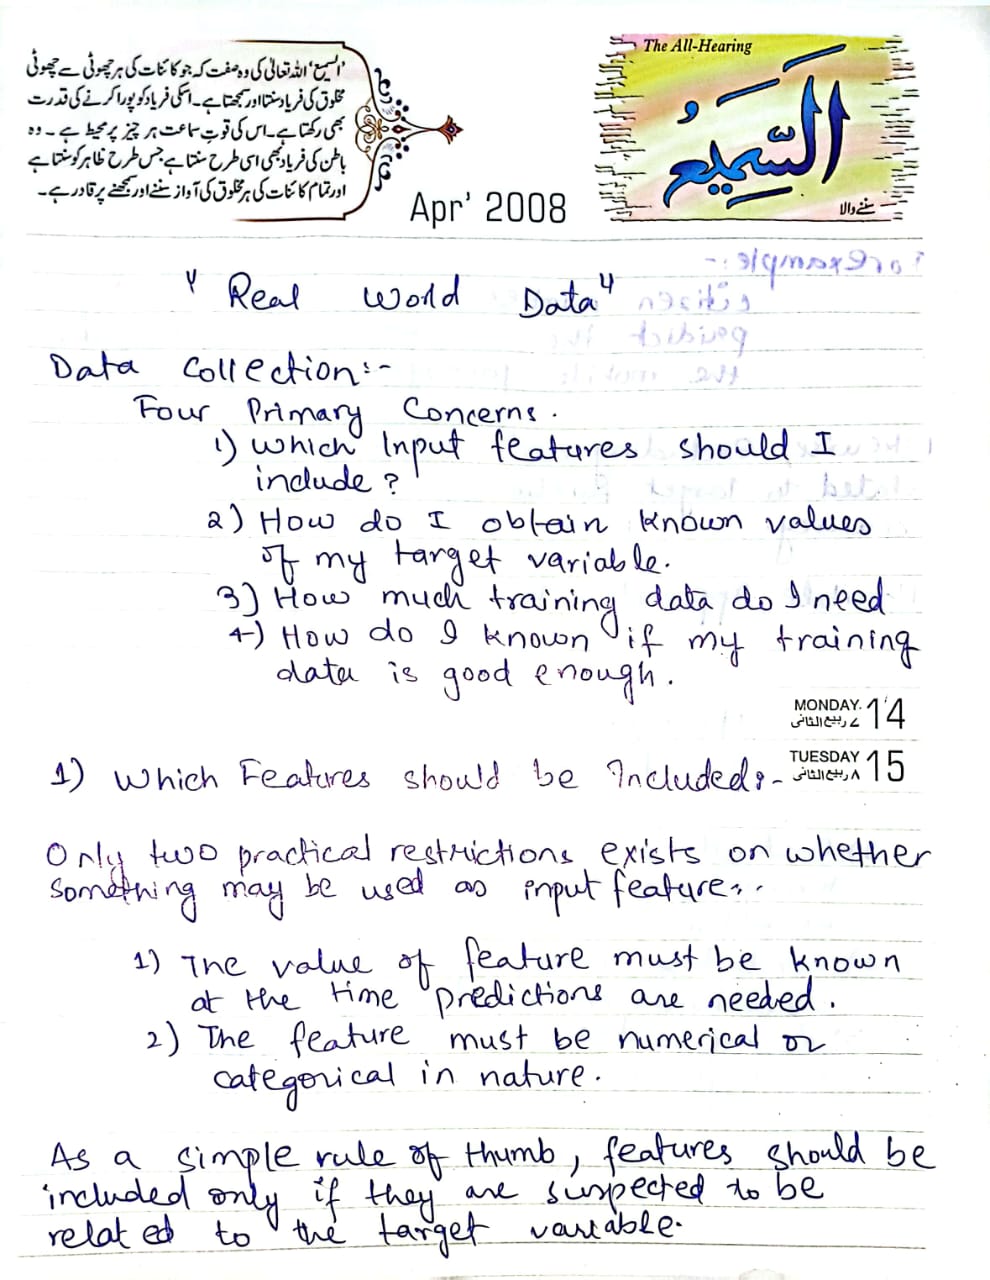 'السمیع' اللہ تعالیٰ کی وہ صفت کہ جو کائنات کی ہر چھوٹی سے چھوٹی
مخلوق کی فریاد سنتا اور سمجھتا ہے۔ اسکی فریاد کو پورا کرنے کی قدرت
بھی رکھتا ہے۔ اس کی قوتِ سماعت ہر چیز پر محیط ہے۔ وہ
باطن کی فریاد بھی اسی طرح سنتا ہے جس طرح ظاہر کو سنتا ہے
اور تمام کائنات کی ہر مخلوق کی آواز سننے اور سمجھنے پر قادر ہے۔
The All-Hearing
السَّمِيعُ
سننے والا
Apr' 2008
"Real World Data"
Data Collection:-
Four Primary Concerns.
1) which Input features should I
include?
2) How do I obtain known values
of my target variable.
3) How much training data do I need
4) How do I known if my training
data is good enough.
MONDAY. 14
۷ ربیع الثانی
TUESDAY 15
۸ ربیع الثانی
1) which Features should be Included:-
Only two practical restrictions exists on whether
something may be used as input feature:.
1) The value of feature must be known
at the time predictions are needed.
2) The feature must be numerical or
categorical in nature.
As a simple rule of thumb, features should be
included only if they are suspected to be
related to the target variable.